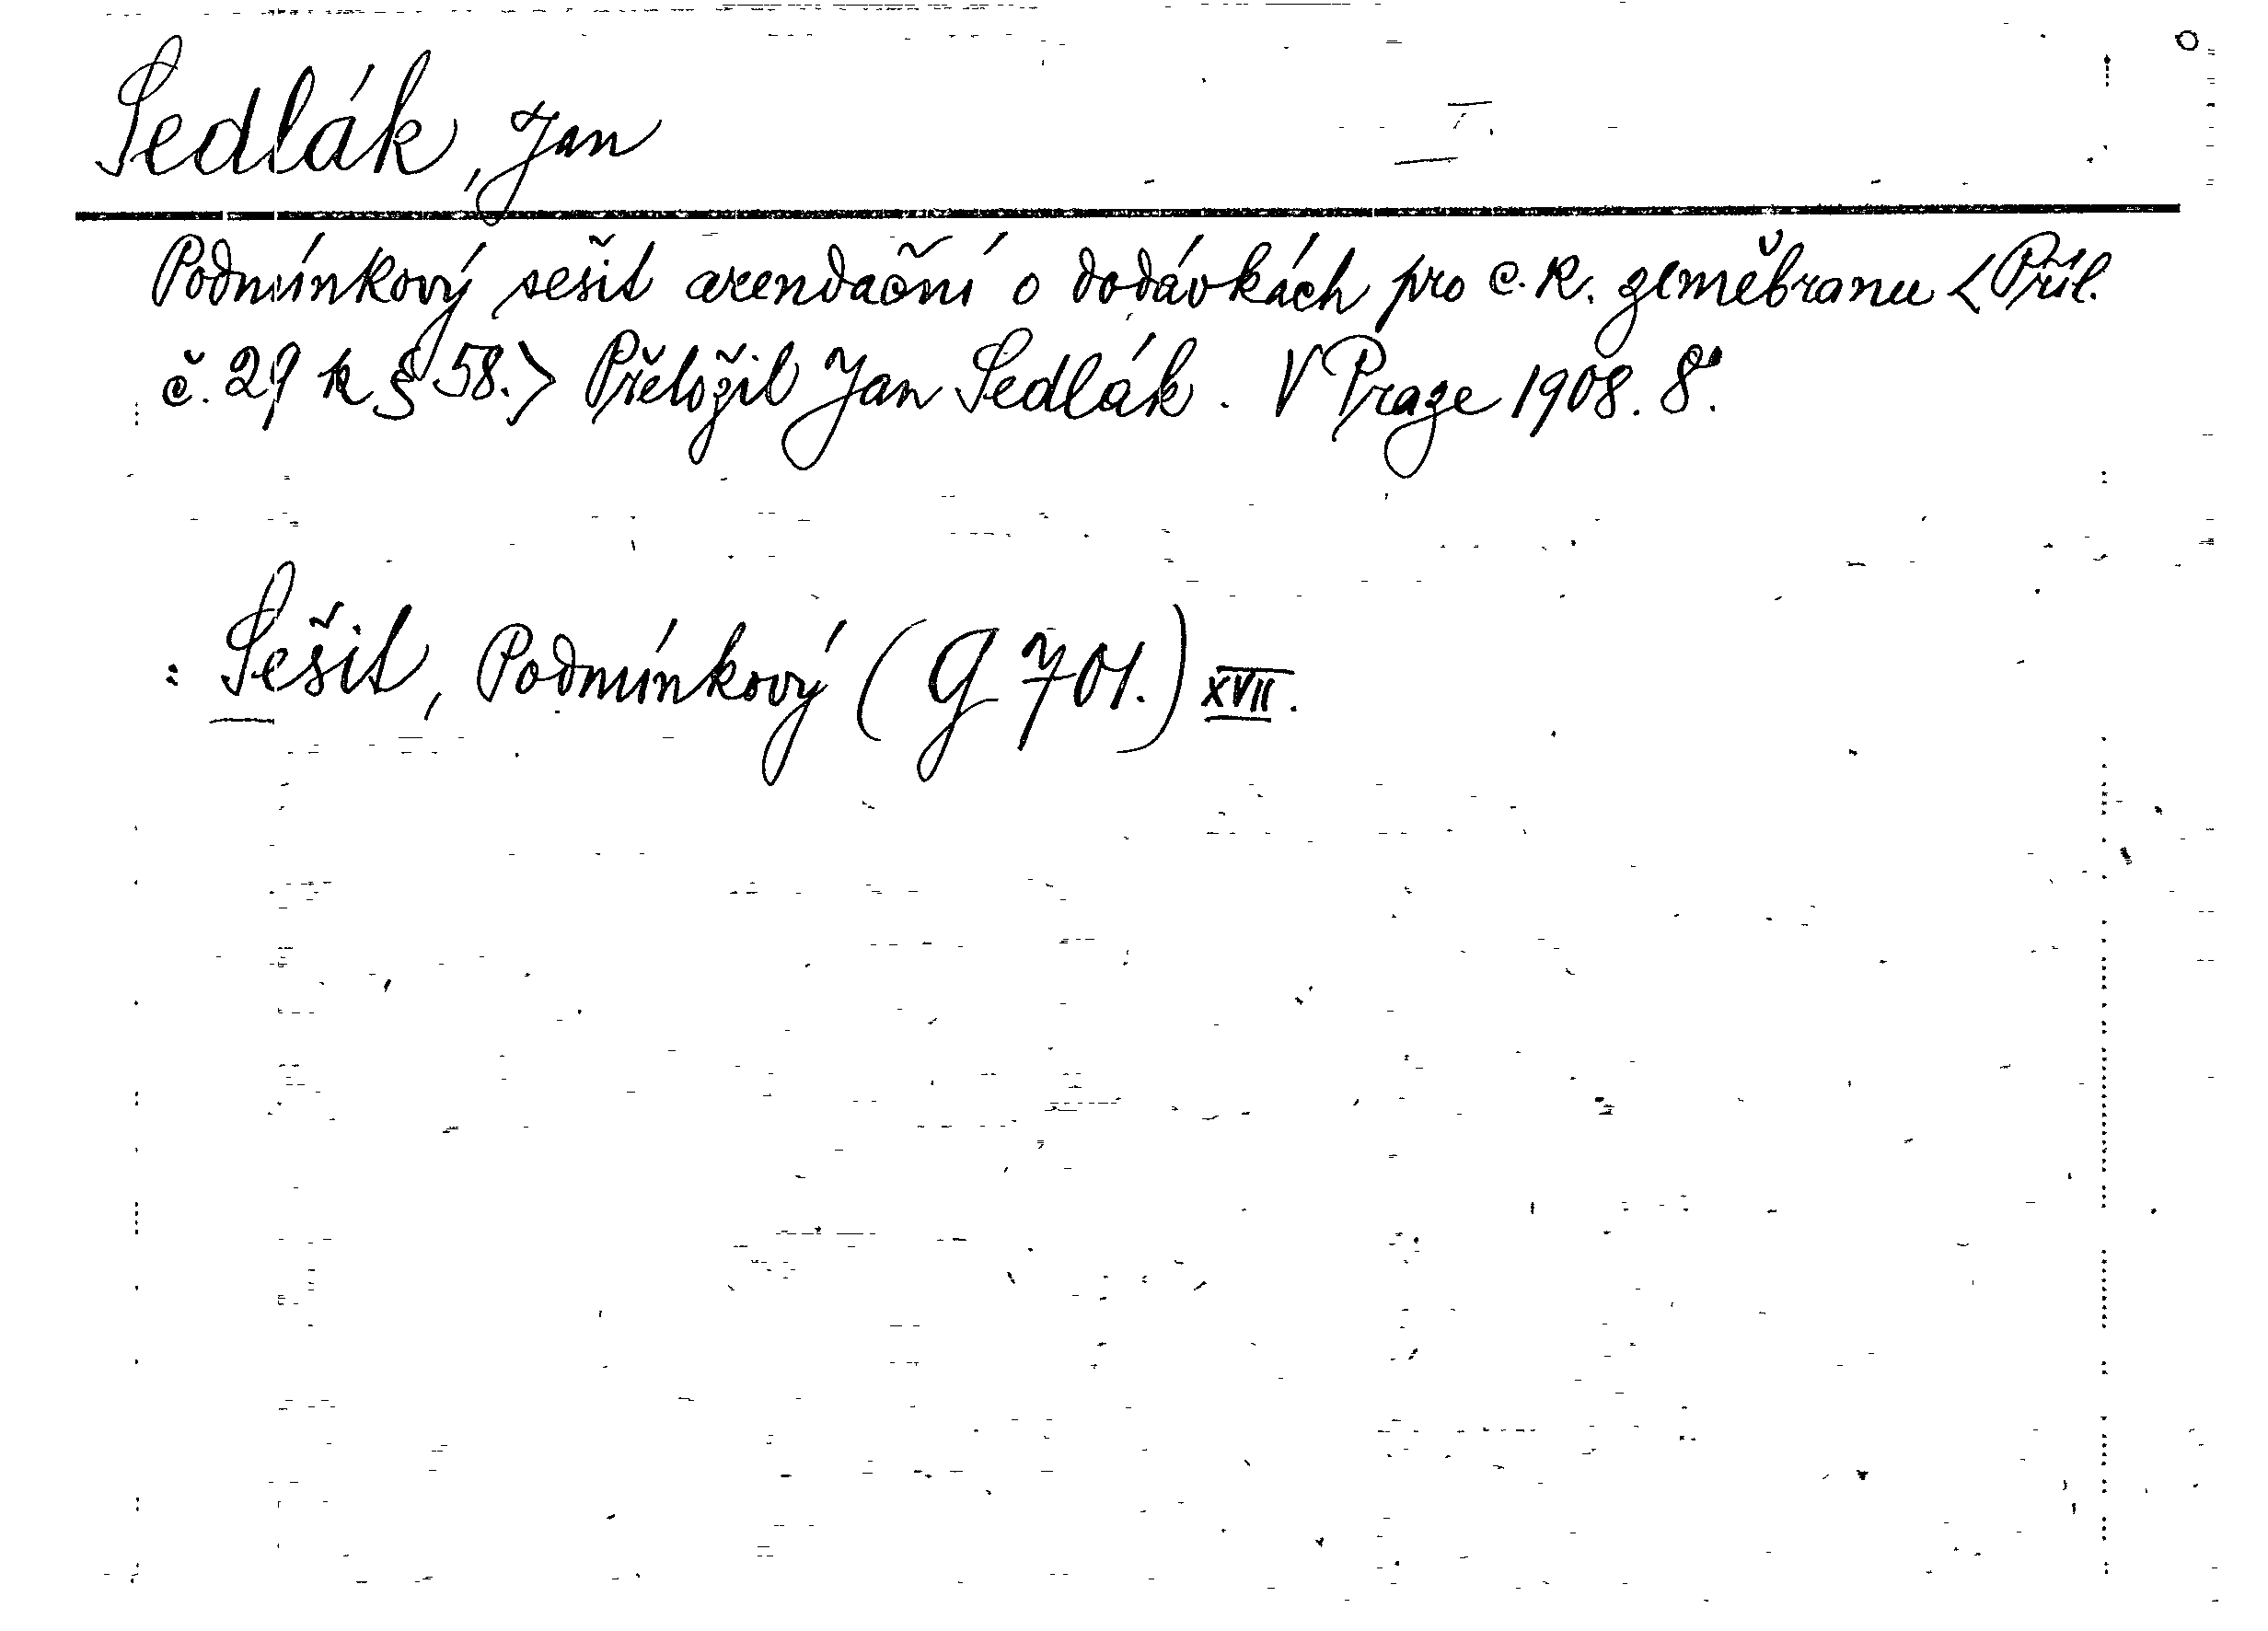 Sedlák, Jan
Podmínkový sešit arendační o dodávkách pro c. k. zeměbranu <Příl.
č. 29 k § 58.> Přeložil Jan Sedlák. V Praze 1908. 8°.
: Sešit, Podmínkový (G 701.) XVII.